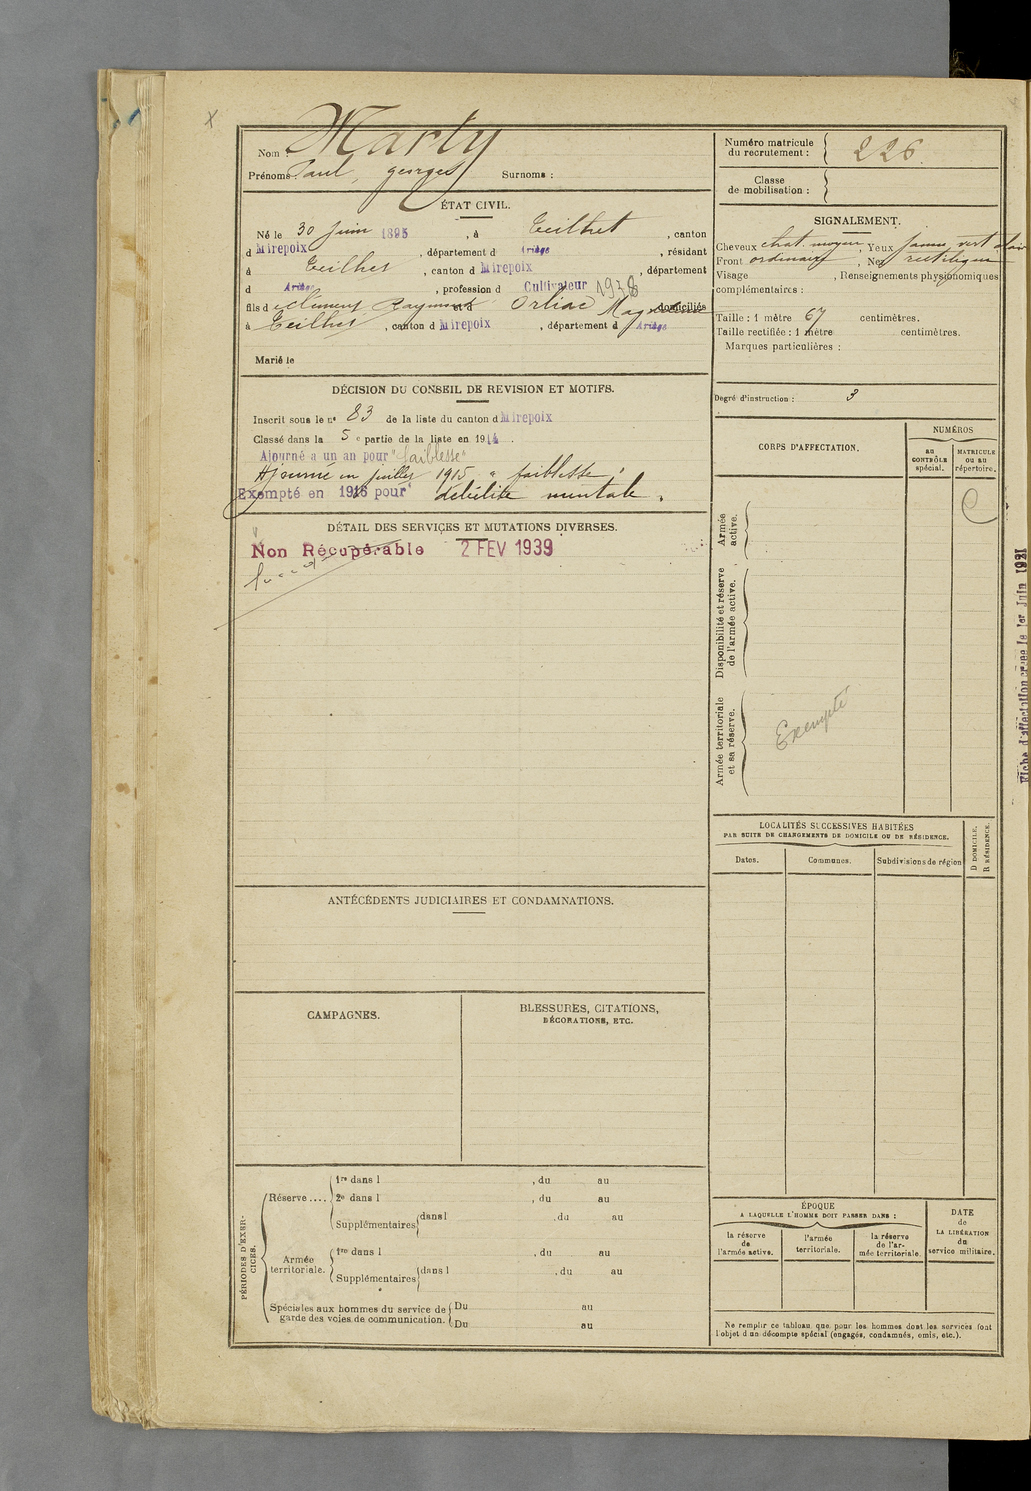 Nom : Marty
Prénoms : Paul, georges Surnoms :
Numéro matricule du recrutement : 226.
Classe de mobilisation :
ÉTAT CIVIL.
Né le 30 juin 1895, à Teilhet, canton
d Mirepoix, département d Ariège, résidant
à Teilhet, canton d Mirepoix, département
d Ariège, profession d Cultivateur 1938
fils d e Clément Raymond et d Orliac domiciliés
à Teilhet, canton d Mirepoix, département d Ariège
Marié le
SIGNALEMENT.
Cheveux chat. moyen, Yeux jaune vert clair
Front ordinaire, Nez rectiligne
Visage , Renseignements physionomiques
complémentaires :
Taille : 1 mètre 67 centimètres.
Taille rectifiée : 1 mètre centimètres.
Marques particulières :
Degré d'instruction : 3
DÉCISION DU CONSEIL DE REVISION ET MOTIFS.
Inscrit sous le n° 83 de la liste du canton d Mirepoix
Classé dans la 5e partie de la liste en 1914.
Ajourné a un an pour "faiblesse"
Ajourné en juillet 1915 "faiblesse"
Exempté en 1916 pour débilité mentale.
DÉTAIL DES SERVICES ET MUTATIONS DIVERSES.
Non Récupérable 2 FEV 1939
CORPS D'AFFECTATION.
NUMÉROS
au CONTRÔLE spécial.
MATRICULE ou au répertoire.
C
Armée active.
Disponibilité et réserve de l'armée active.
Armée territoriale et sa réserve.
Exempté
Fiche d'affectation créée le 1er Juin 1921
LOCALITÉS SUCCESSIVES HABITÉES
PAR SUITE DE CHANGEMENTS DE DOMICILE OU DE RÉSIDENCE.
D DOMICILE.
R RÉSIDENCE.
Dates. Communes. Subdivisions de région
ANTÉCÉDENTS JUDICIAIRES ET CONDAMNATIONS.
CAMPAGNES.
BLESSURES, CITATIONS,
DÉCORATIONS, ETC.
PÉRIODES D'EXERCICES.
Réserve....
1re dans l , du au
2e dans l , du au
Supplémentaires dans l , du au
Armée territoriale.
1re dans l , du au
Supplémentaires dans l , du au
Spéciales aux hommes du service de garde des voies de communication.
Du au
Du au
ÉPOQUE
A LAQUELLE L'HOMME DOIT PASSER DANS :
la réserve de l'armée active.
l'armée territoriale.
la réserve de l'armée territoriale.
DATE de LA LIBÉRATION du service militaire.
Ne remplir ce tableau que pour les hommes dont les services font
l'objet d'un décompte spécial (engagés, condamnés, omis, etc.).